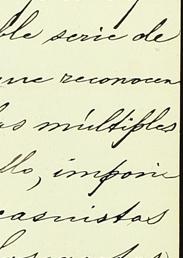 ble serie de
que reconocen
las múltiples
llo, impone
casuistas